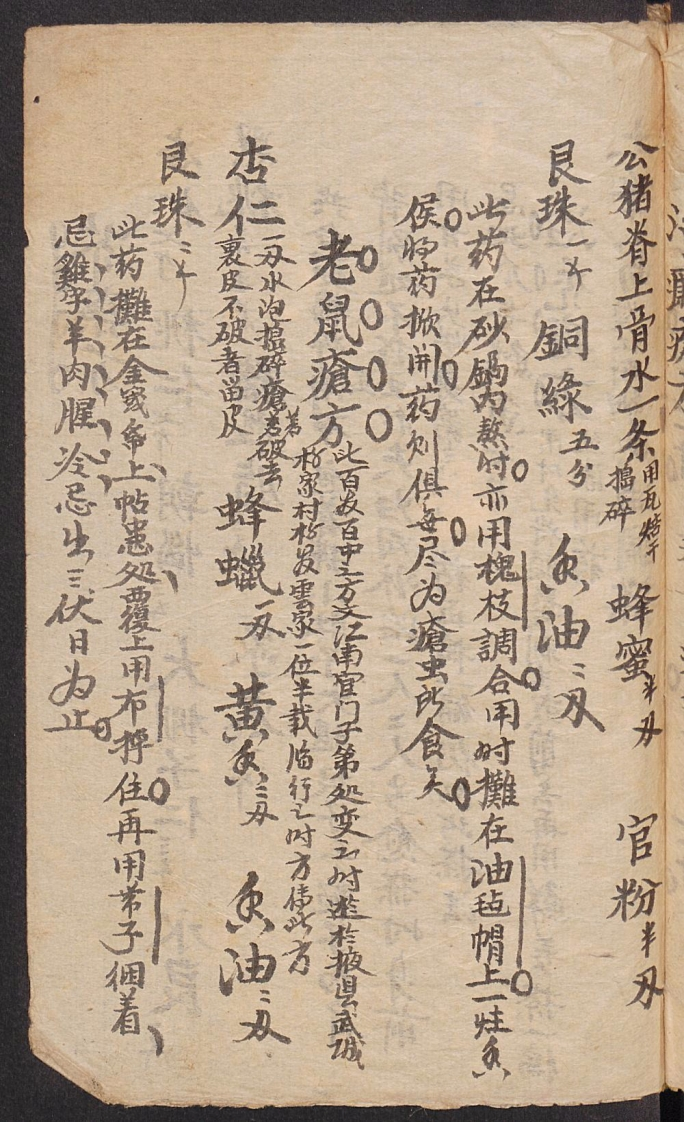 公猪脊上骨水一条用瓦焙干搗碎 蜂蜜半刄 官粉半刄
艮珠一个 銅綠五分 香油二刄
此药在砂鍋内熬时亦用槐枝調合用时攤在油毡帽上一炷香
候将药掀開药则俱無尽为瘡虫所食矣
老鼠瘡方此百发百中之方文江南宦门子第处变之时逃於掖县武城
村家村 家一位半载临行之时方傳此方
杏仁一刄水泡搗碎瘡若破去裏皮不破者畄皮 蜂蠟一刄 黄香二刄 香油二刄
艮珠二个
此药攤在金 帋上帖患处 覆上用布 住再用帯子綑着
忌雞子羊肉腥冷忌出三伏日为止